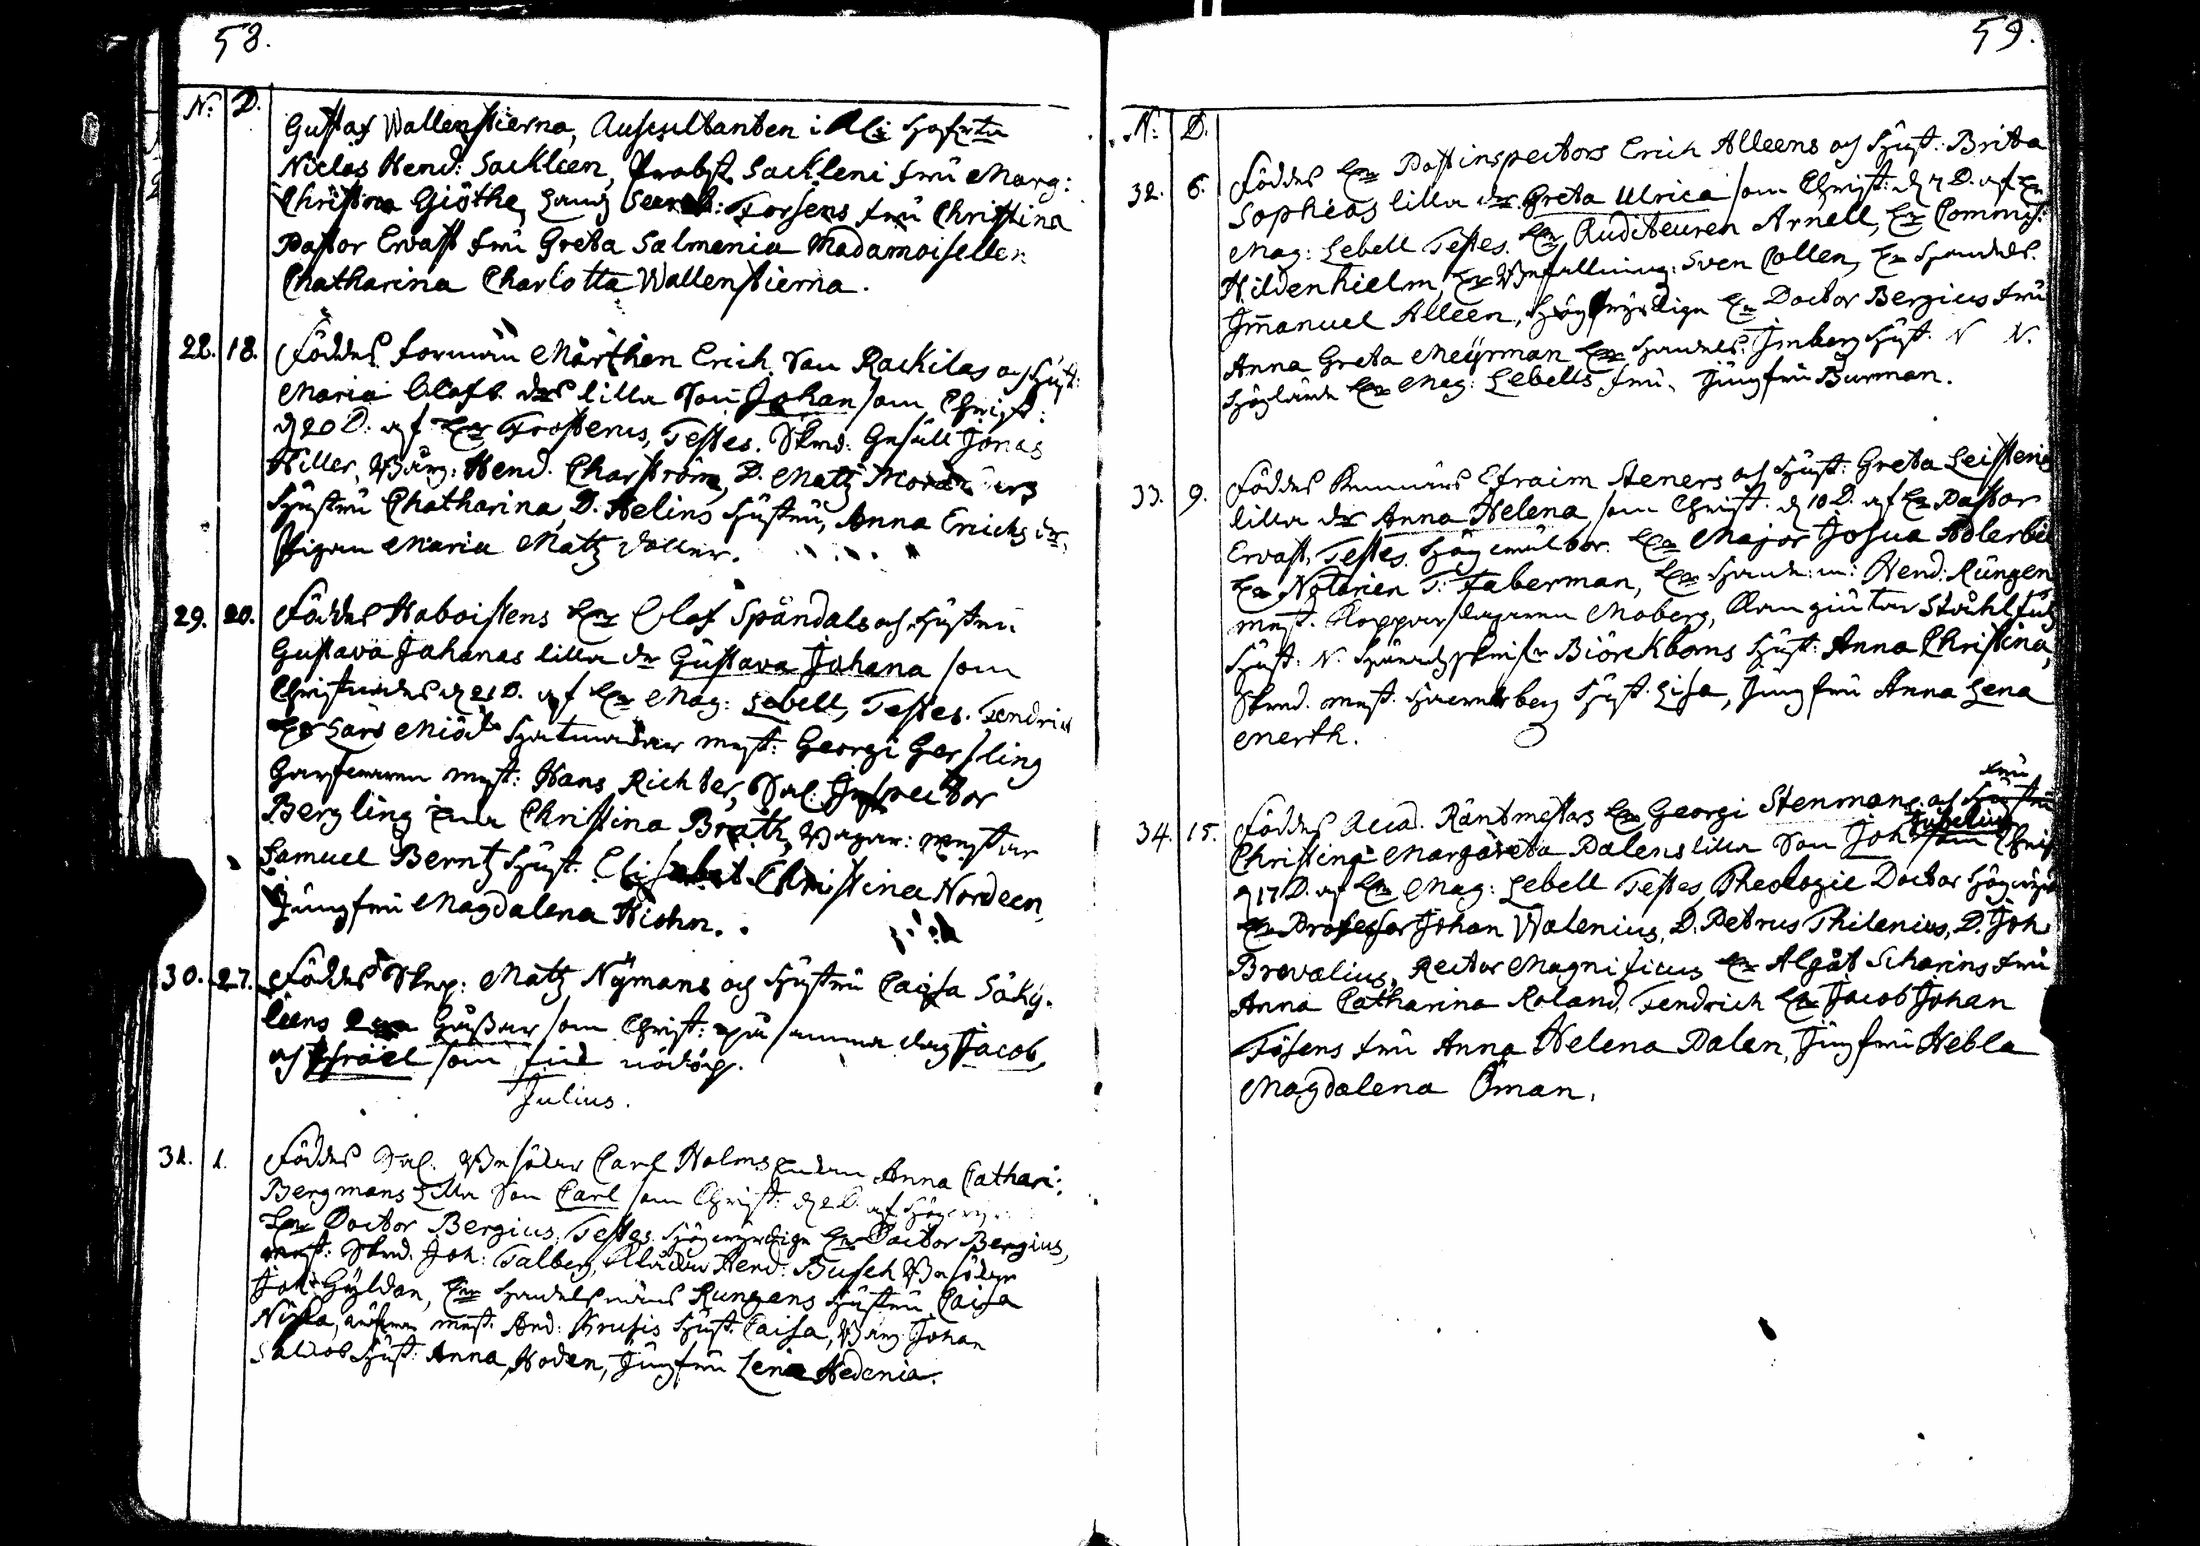 58.
N. D.
Gustaf Wallenstierna, Auscultanten i
Niclas Hend: Sackleen, Probst. Sackleni fru Marg:
Christina Giöthe, Land Secret: Forsens fru Christina
Pastor Ervast fru Greta Salmenia Madamoisellen
Chatharina Charlotta Wallenstierna.
28. 18. Föddes forman Mårthen Erich Son Rackilas och Hust:
Maria Olofs drs lilla Son Johan som Christ:
d 20 D. af Hr Frosterus, Testes. Skrad: Gesäll Jonas
Hiller, Borg: Hend. Charström, D. Matz
Hustru Chatharina, D. Helins Hustru, Anna Erichs dr,
Pigan Maria Matz dotter.
29. 20. Föddes Haboistens Hr Olof Spåndals och Hustru
Gustava Johanas lilla dr Gustava Johana som
Christnades d 21 D. af Hr Mag: Lebell, Testes. Fendrich
Hr Lars Miöd Hatmakar mest: Georgi Gersling
Garfvaren mest: Hans Richter, Sal. Inspector
Bergling Enka Christina Bråth, Bagar: mestar
Samuel Berntz Hust. Elisabet Christina Nordeen,
Jungfru Magdalena Kiohn.
30. 27. Föddes Skep: Matz Nÿmans och Hustru Caisa Säky-
leens 2 Gußar som Christ: på samma dag Jacob,
och Israel som nöddöp.
Julius.
31. 1. Föddes Sal. Besökar Carl Holms Enkan Anna Cathari:
Bergmans Lilla Son Carl som Christ: d 2 D. af
Hr Doctor Bergius, Testes. Högwyrdige Hr Doctor Bergius,
mest: Skrad. Joh: Talberg, Hend: Busch Besökar
Joh: Gÿldan, Hr Handelsmans Rungens Hustru Caisa
mest. And: Krusis Hust. Caisa, Borg: Johan
Hust: Anna Noden, Jungfru Lena Hedenia.
59.
N: D.
32. 6. Föddes Hr Postinspectors Erich Alleens och Hust: Brita
Sophias lilla dr Greta Ulrica som Christ: d 7 D. af Hr
Mag: Lebell Testes. Hr Auditeuren Arnell, Hr Commis:
Hildenhielm, Hr Befallning: Sven Collen, Hr Handels.
Immanuel Alleen, Högwyrdige Hr Doctor Bergius fru
Anna Greta Meÿrman Hr Handels. Imberg Hust. N N.
Höglärde Hr Mag: Lebells fru, Jungfru Burman.
33. 9. Föddes Efraim Steners och Hust: Greta Leistenis
lilla dr Anna Helena som Christ. d 10 D. af Hr Pastor
Ervast, Testes. Hr Major Josua Adlerbie
Hr Notarien T: Faberman, Hr Handelsm: Hend: Rungen
mest. Kopparslagaren Moberg, Stråhlfuß
Hust: N. Biörckboms Hust: Anna Christina,
Skrad. mest. Hust. Lisa, Jungfru Anna Lena
Merth.
fru
34. 15. Föddes Acad. Räntmestars Hr Georgi Stenmans och Hustru
Christina Margareta Dalens lilla Son Joh som Christ
d 17 D. af Hr Mag: Lebell Testes, Theologie Doctor Högwyrd
Hr Professor Johan Walenius, D. Petrus Thilenius, D. Joh
Brovalius, Rector Magnificus Hr Algåt Scharins fru
Anna Catharina Roland, Fendrich Hr Jacob Johan
Tösens fru Anna Helena Dalen, Jungfru Hebla
Magdalena Öman.